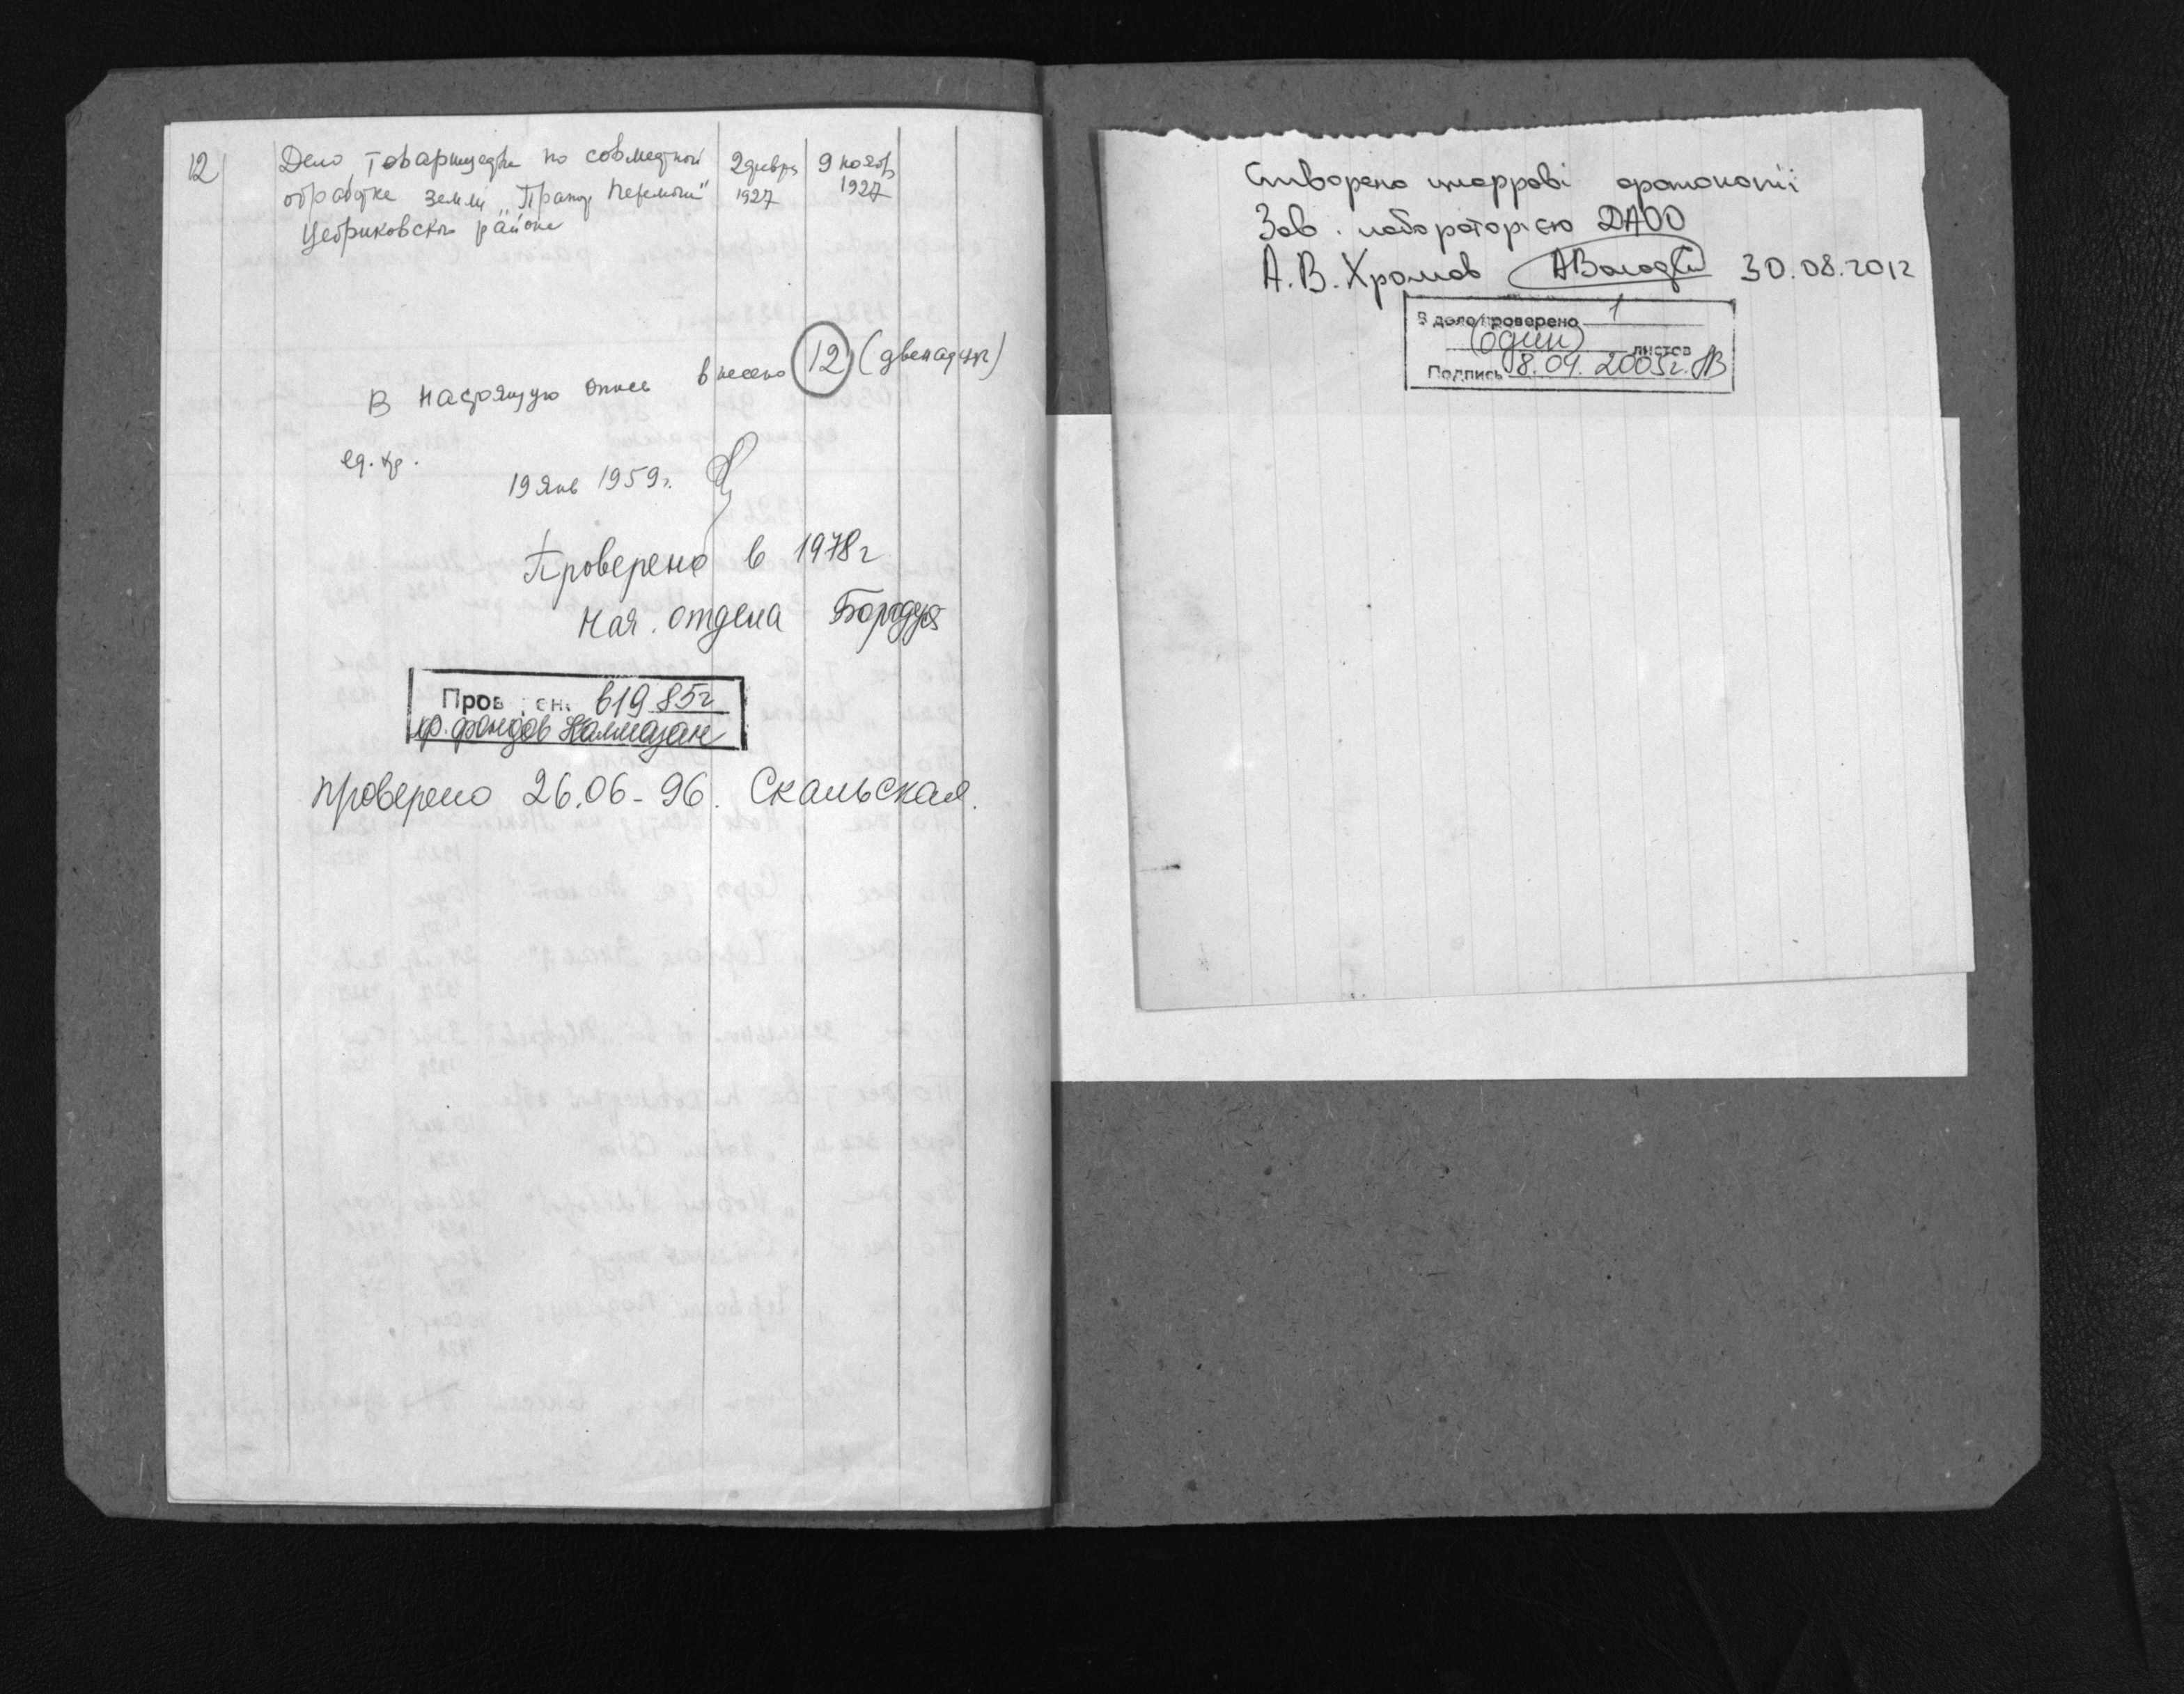 12 Дело товарищества по совместной 2 февр 9 нояб
обработке земли „Прапор перемоги" 1927 1927
Цебриковского района
В настоящую опись внесено 12 (двенадцать)
ед. хр.
19 янв 1959 г.
Проверено в 1978 г
Нач. отдела
Пров ен в 1985 г
хр. фондов
проверено 26.06-96. Скальская.
Створено цифрові фотокопії
Зав. лабораторією ДАОО
А.В. Хромов 30.08.2012
В деле проверено 1
(один) листов
Подпись 8.04.2005 г.